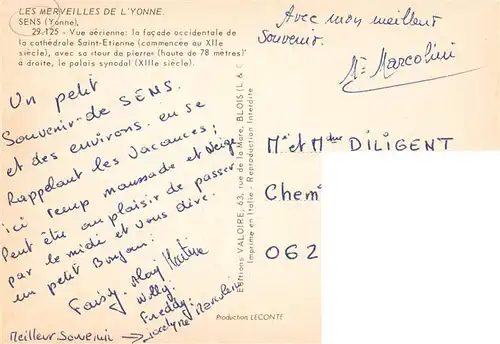 LES MERVEILLES DE L'YONNE.
SENS (Yonne),
29.125 - Vue aérienne: la façade occidentale de
la cathédrale Saint-Etienne (commencée au XIIe
siècle), avec sa «tour de pierre» (haute de 78 mètres)
à droite, le palais synodal (XIIIe siècle).
Avec mon meilleur
Souvenir.
Marcolini
Un petit
Souvenir de SENS.
et des environs. en se
Rappelant les Vacances;
ici temps maussade et Neige
Peut être au plaisir de passer
par le midi et vous dire.
un petit Bonjour:
Willy.
Freddy.
Jocelyne Marcolini
Meilleur Souvenir
Editions VALOIRE, 63, rue de la Mare, BLOIS (L. & C
Imprimé en Italie - Reproduction Interdite
Mr et Mme DILIGENT
Chem
062
Production LECONTE